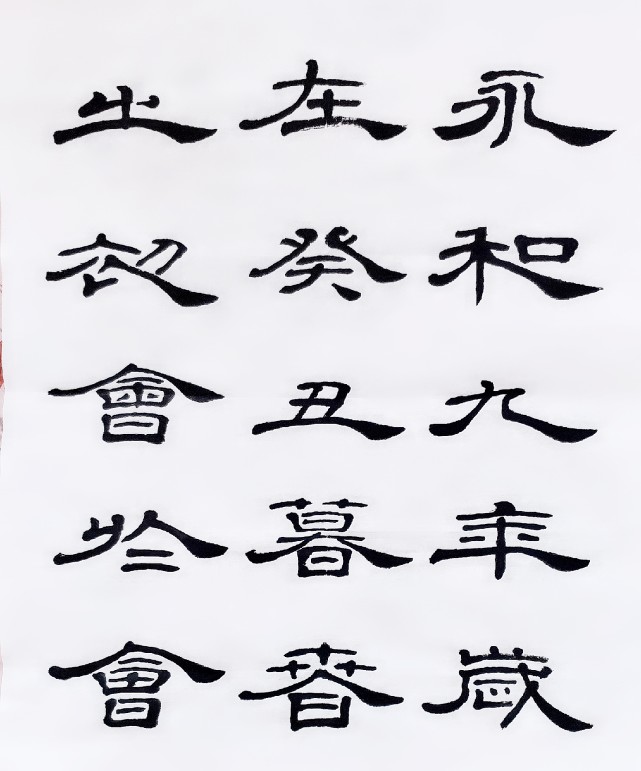 永和九年歲
在癸丑暮春
之初會於會